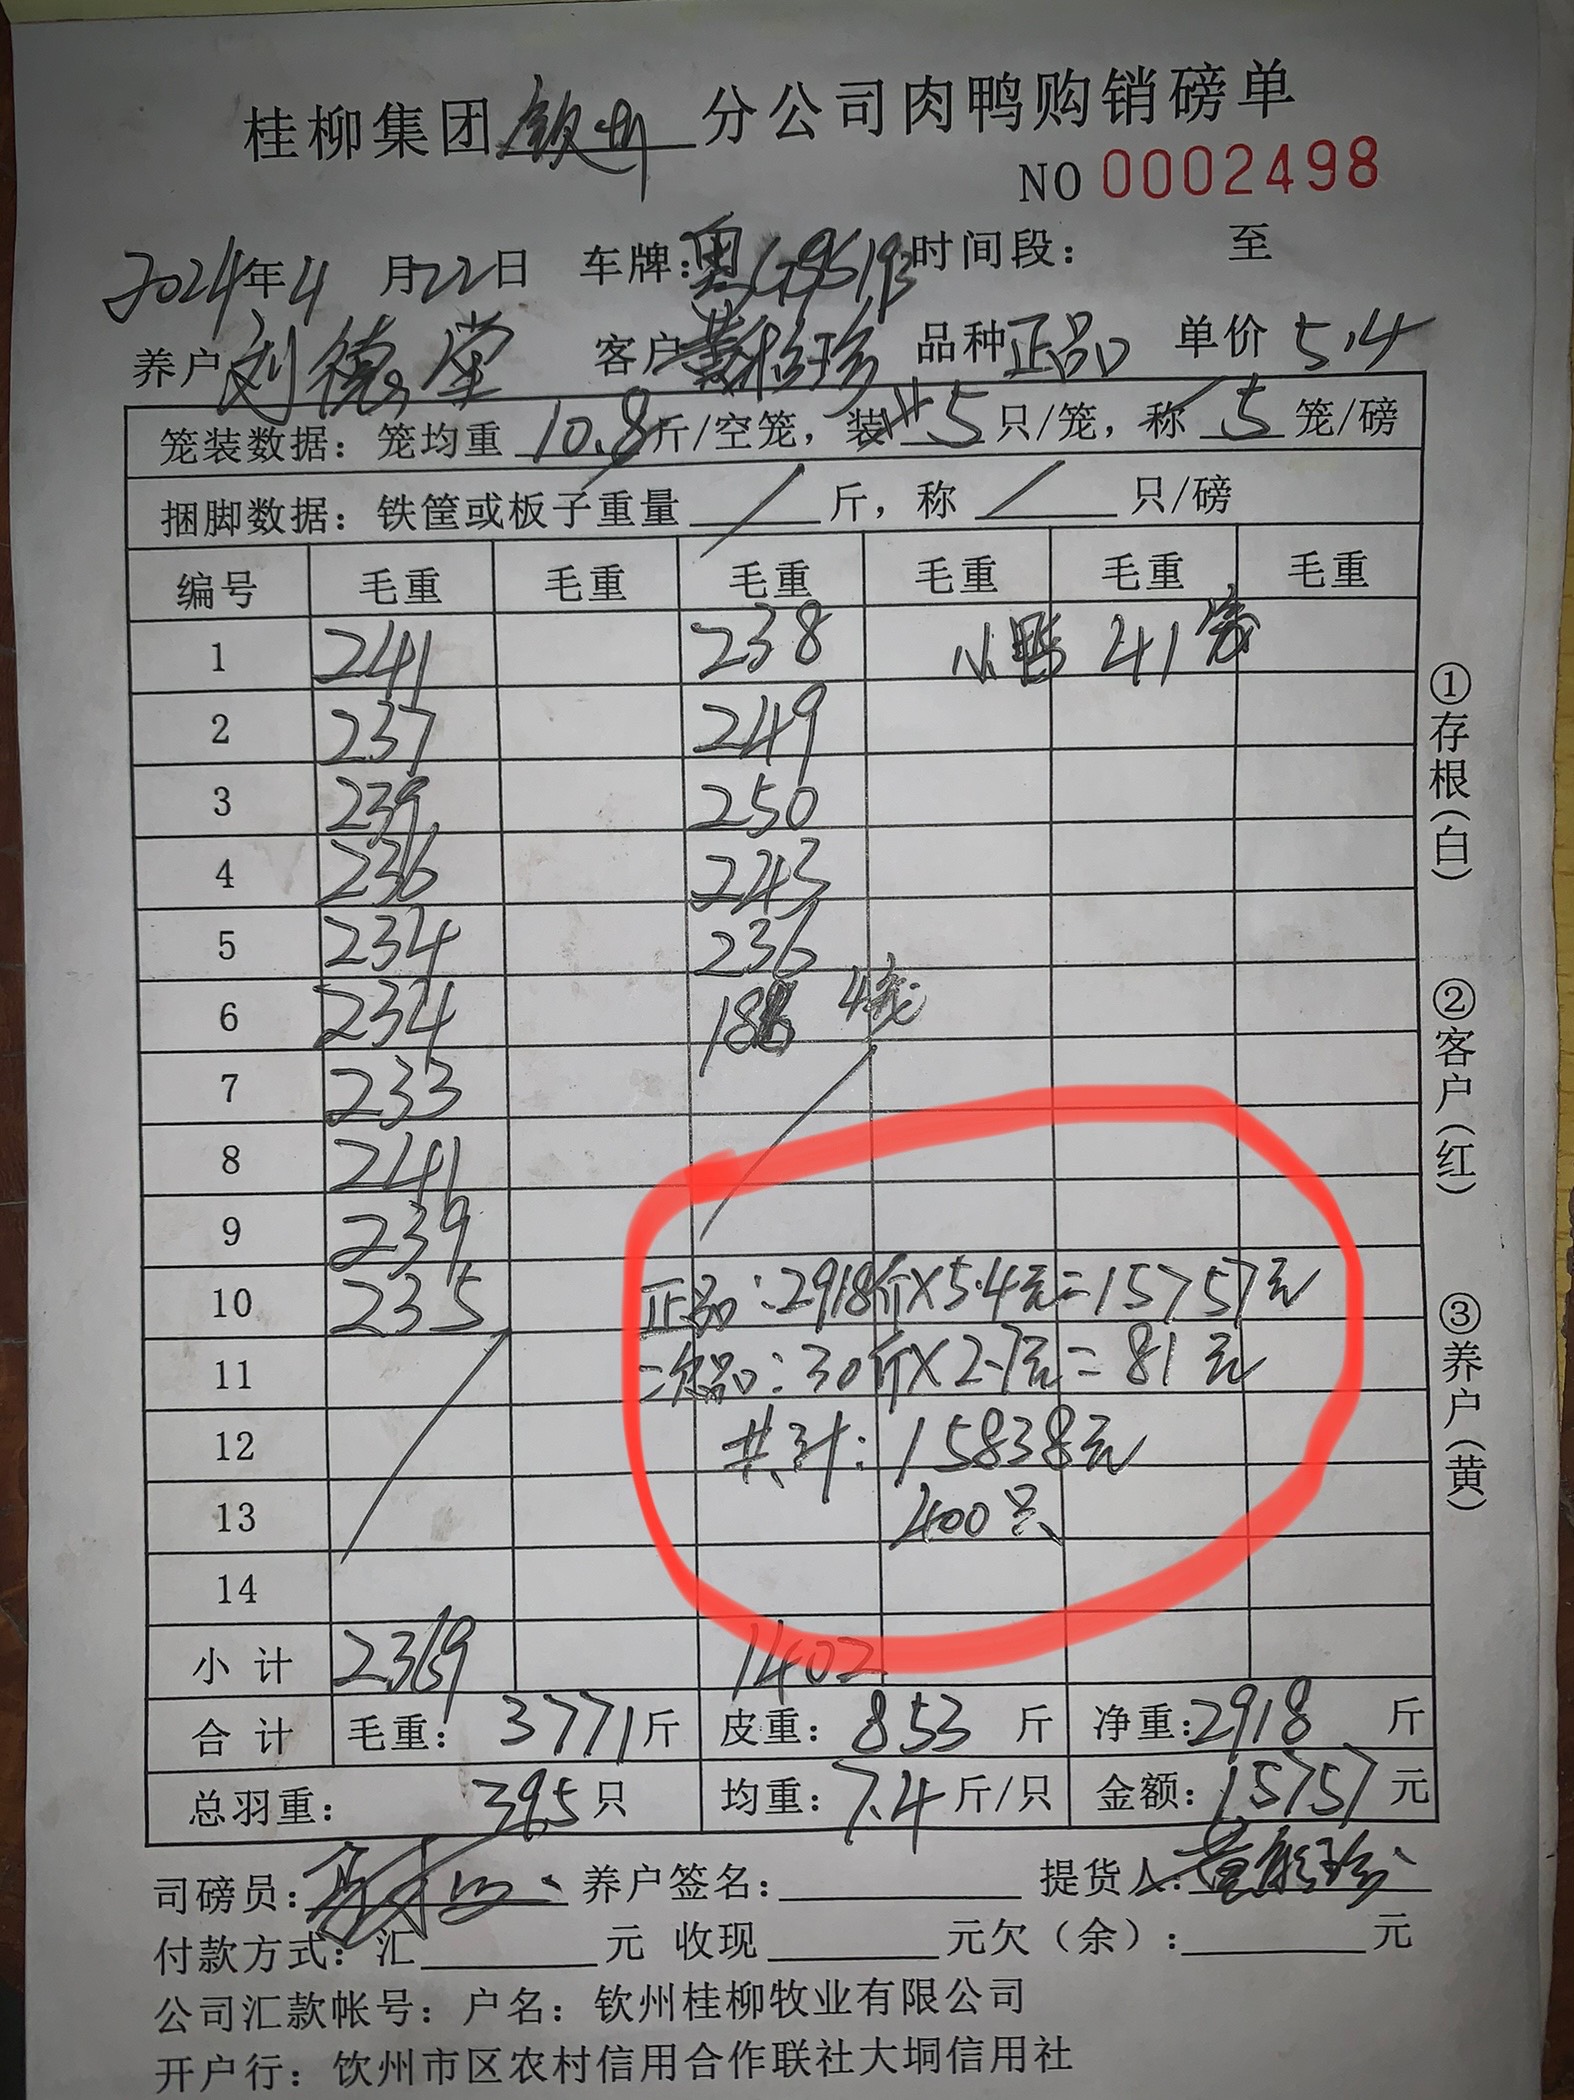 桂柳集团钦州分公司肉鸭购销磅单
NO 0002498
2024年4月22日 车牌: 时间段: 至
养户刘德堂 客户 品种正品 单价5.4
笼装数据: 笼均重10.8斤/空笼, 装5只/笼, 称5笼/磅
捆脚数据: 铁筐或板子重量/斤, 称/只/磅
编号 毛重 毛重 毛重 毛重 毛重 毛重
1 241 238 小鸭 41笼
2 237 249
3 239 250
4 236 243
5 234 236
6 234 4笼
7 233
8 241
9 239
10 235 正品:2918斤×5.4元=15757元
11 二次品:30斤×2.7元=81元
12 共计:15838元
13 400只
14
小计 2369 1402
合计 毛重: 3771斤 皮重: 853斤 净重:2918斤
总羽重: 395只 均重: 7.4斤/只 金额:15757元
司磅员: 养户签名: 提货人:
付款方式: 汇 元 收现 元欠(余): 元
公司汇款帐号: 户名: 钦州桂柳牧业有限公司
开户行: 钦州市区农村信用合作联社大垌信用社
①存根(白)
②客户(红)
③养户(黄)